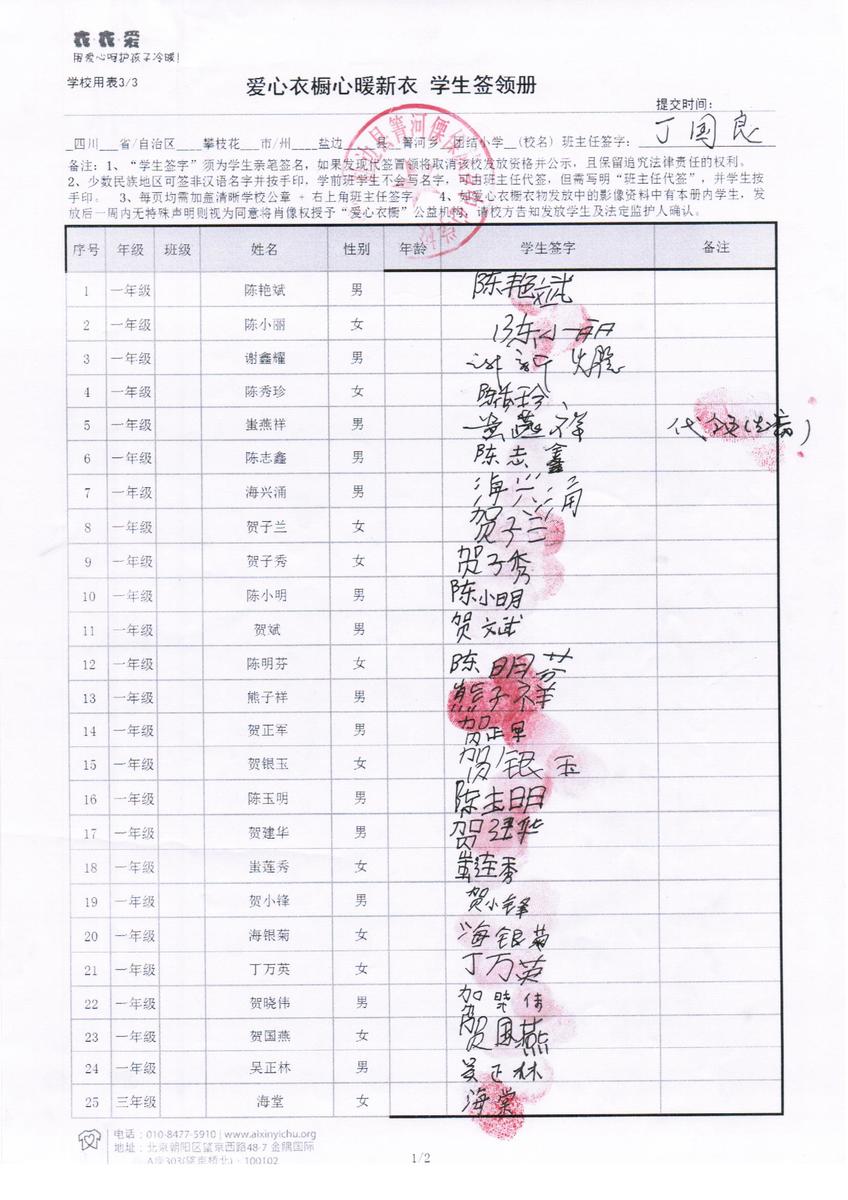 衣·衣·爱
用爱心呵护孩子冷暖!
学校用表3/3
爱心衣橱心暖新衣 学生签领册
提交时间:
_四川___省/自治区____攀枝花___市/州____盐边____县_箐河乡_团结小学__(校名) 班主任签字: 丁国良
备注: 1、“学生签字”须为学生亲笔签名, 如果发现代签冒领将取消该校发放资格并公示, 且保留追究法律责任的权利。
2、少数民族地区可签非汉语名字并按手印. 学前班学生不会写名字, 可由班主任代签, 但需写明“班主任代签”, 并学生按
手印. 3、每页均需加盖清晰学校公章 + 右上角班主任签字. 4、如爱心衣橱衣物发放中的影像资料中有本册内学生, 发
放后一周内无特殊声明则视为同意将肖像权授予“爱心衣橱”公益机构, 请校方告知发放学生及法定监护人确认。
序号 年级 班级 姓名 性别 年龄 学生签字 备注
1 一年级 陈艳斌 男 陈艳斌
2 一年级 陈小丽 女 陈小丽
3 一年级 谢鑫耀 男
4 一年级 陈秀珍 女 陈秀珍
5 一年级 蚩燕祥 男 蚩燕祥 代领(生病)
6 一年级 陈志鑫 男 陈志鑫
7 一年级 海兴涌 男 海兴涌
8 一年级 贺子兰 女 贺子兰
9 一年级 贺子秀 女 贺子秀
10 一年级 陈小明 男 陈小明
11 一年级 贺斌 男 贺斌
12 一年级 陈明芬 女 陈明芬
13 一年级 熊子祥 男 熊子祥
14 一年级 贺正军 男 贺正军
15 一年级 贺银玉 女 贺银玉
16 一年级 陈玉明 男 陈玉明
17 一年级 贺建华 男 贺建华
18 一年级 蚩莲秀 女 蚩莲秀
19 一年级 贺小锋 男 贺小锋
20 一年级 海银菊 女 海银菊
21 一年级 丁万英 女 丁万英
22 一年级 贺晓伟 男 贺晓伟
23 一年级 贺国燕 女 贺国燕
24 一年级 吴正林 男 吴正林
25 三年级 海堂 女 海棠
电话: 010-8477-5910 | www.aixinyichu.org
地址: 北京朝阳区望京西路48-7 金隅国际
A座303(望京桥北) · 100102
1/2